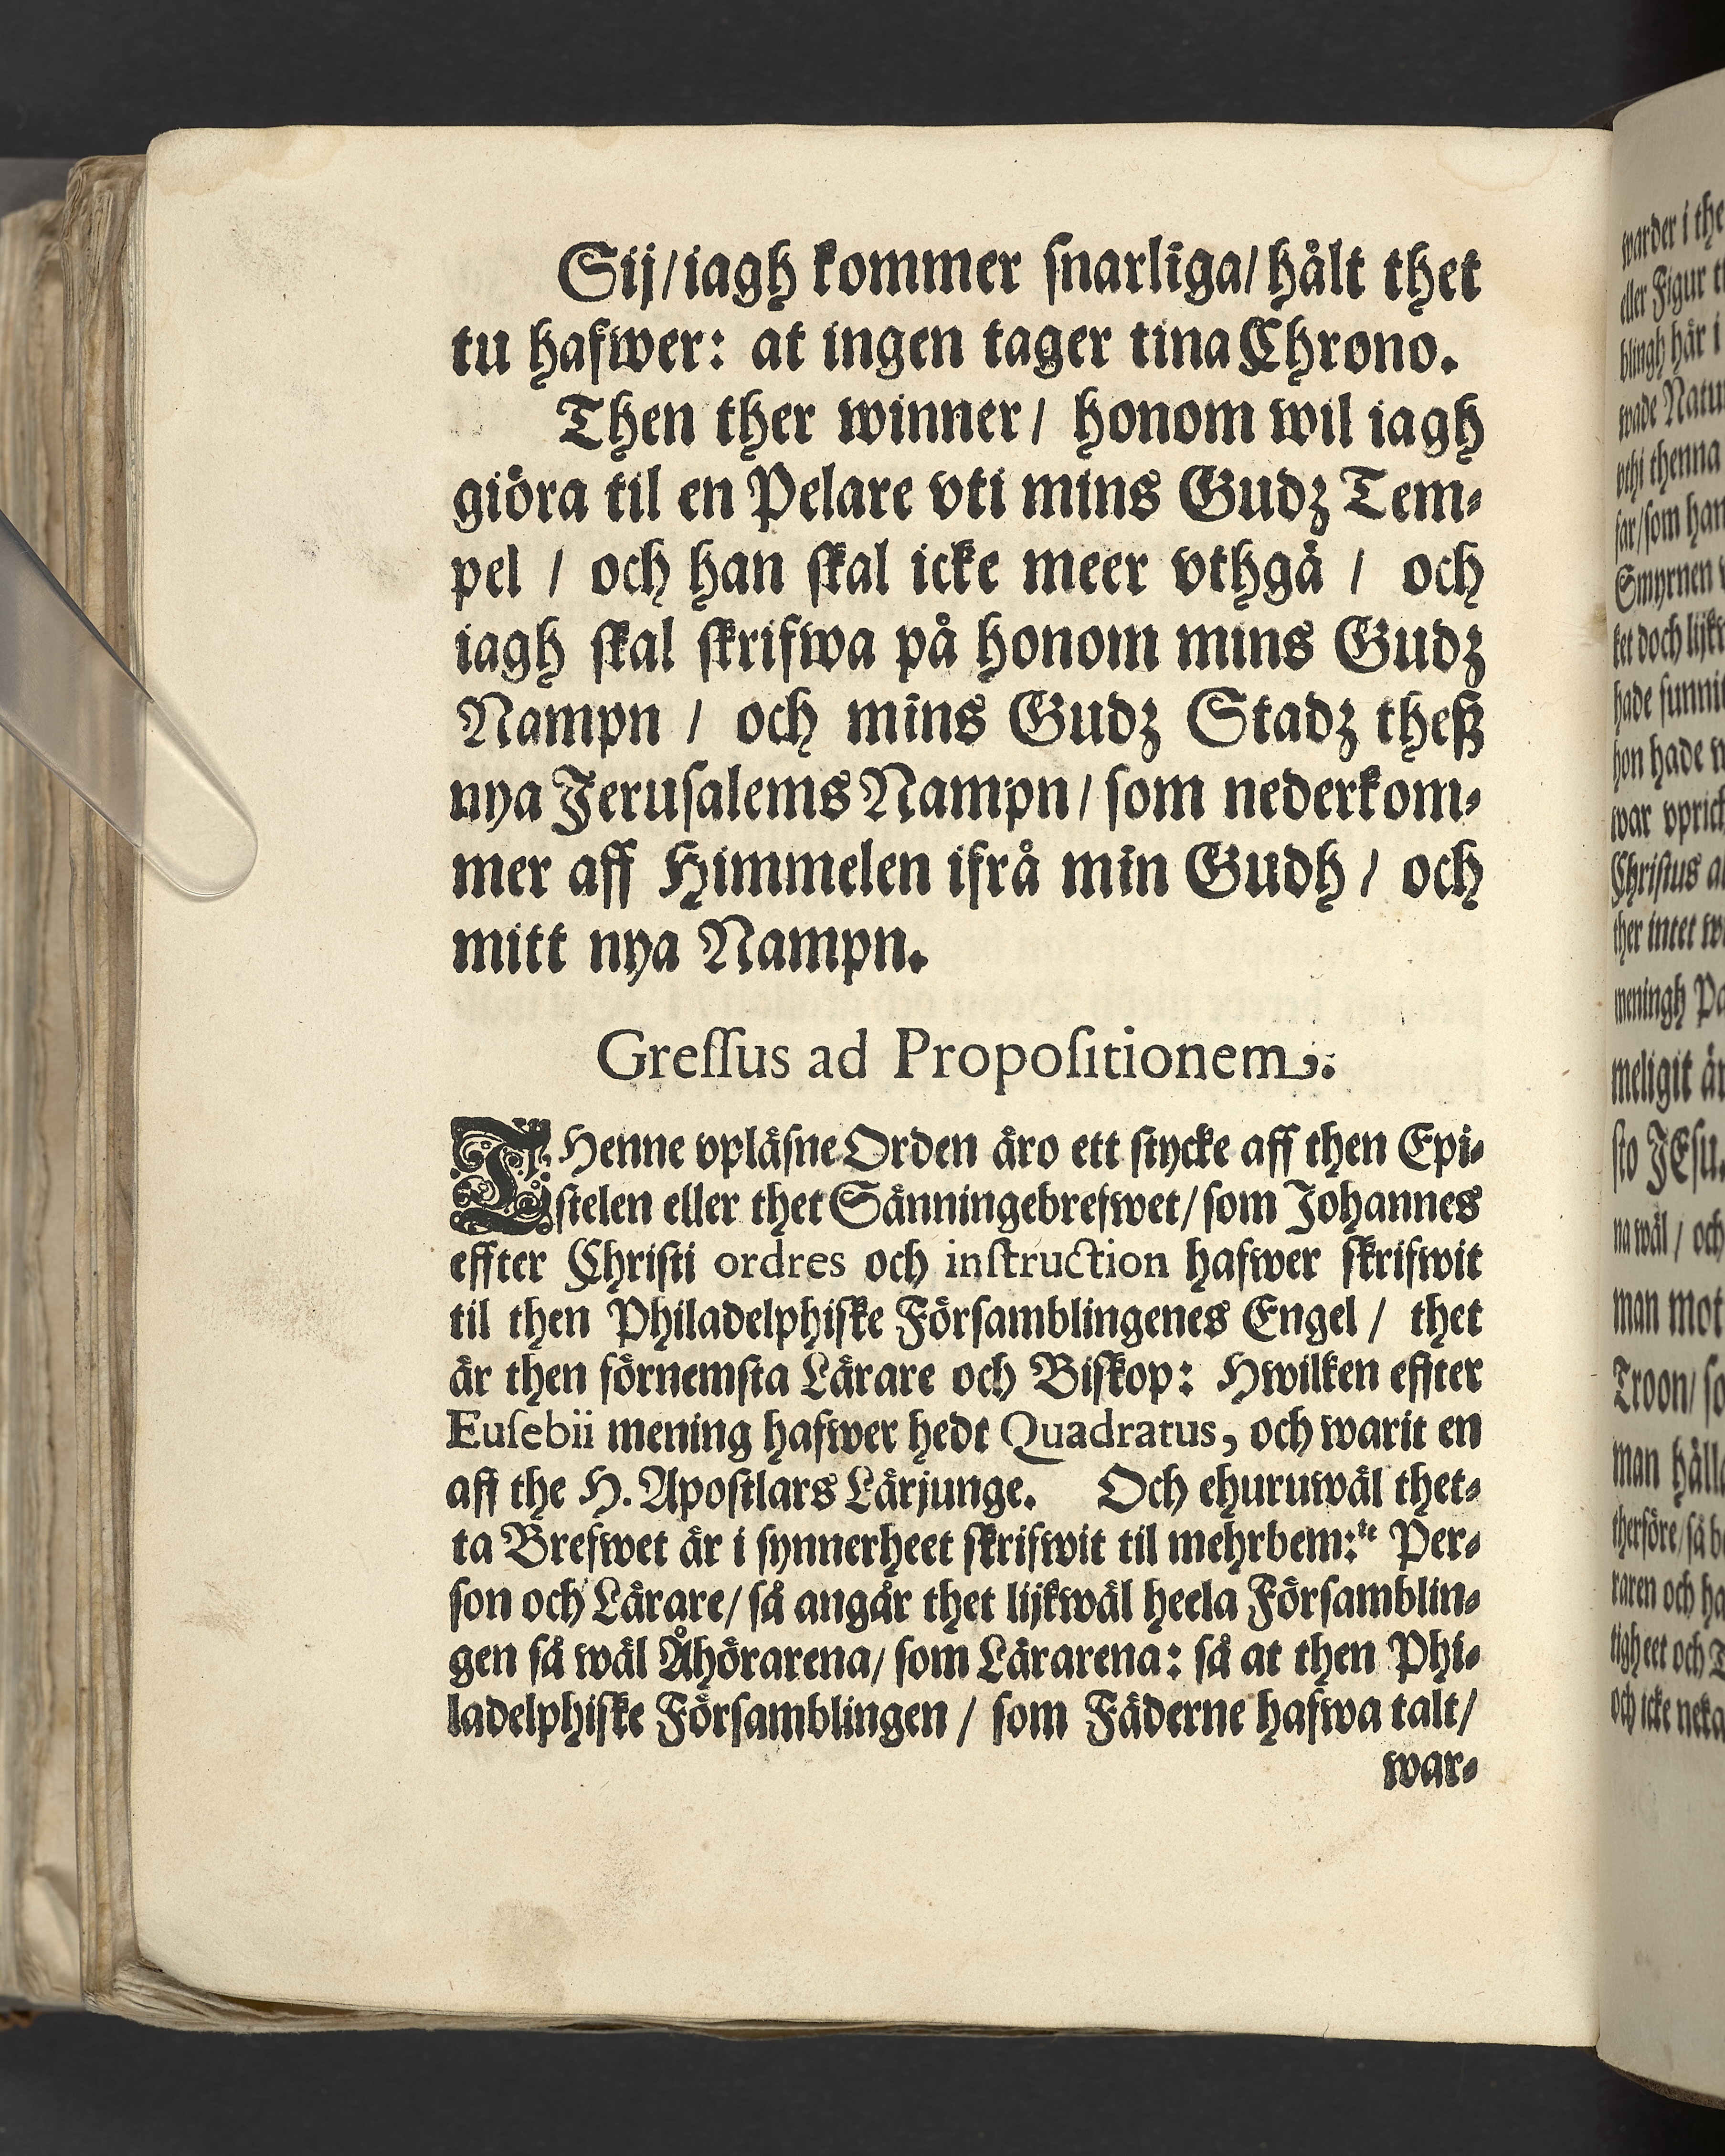 Sij/iagh kommer snarliga/hålt thet
tu hafwer: at ingen tager tina Chrono.
Then ther winner/ honom wil iagh
giöra til en Pelare vti mins Gudz Tem-
pel / och han skal icke meer vthgå / och
iagh skal skrifwa på honom mins Gudz
Nampn / och mins Gudz Stadz theß
nya Jerusalems Nampn/ som nederkom-
mer aff Himmelen ifrå min Gudh / och
mitt nya Nampn.
Gressus ad Propositionem.
THenne vpläsne Orden äro ett stycke aff then Epi-
stelen eller thet Sänningebrefwet/ som Johannes
effter Christi ordres och instruction hafwer skrifwit
til then Philadelphiske Församblingenes Engel / thet
är then förnemsta Lärare och Biskop: Hwilken effter
Eusebii mening hafwer hedt Quadratus, och warit en
aff the H. Apostlars Lärjunge. Och ehuruwäl thet-
ta Brefwet är i synnerheet skrifwit til mehrbem:te Per-
son och Lärare/ så angår thet lijkwäl heela Församblin-
gen så wäl Åhörarena/ som Lärarena: så at then Phi-
ladelphiske Församblingen / som Fäderne hafwa talt/
war-
warder i the
eller Figur
blingh här i
wade Natu
vthi thenna
sar/som han
Smyrnen
ket doch lijk
hade
hon hade
war vprich
Christus
ther intet
meningh
meligit
sto JEsu.
na wäl / och
man mot
Troon/ so
man hålla
therföre/så
raren och ha
tigheet och
och icke neka